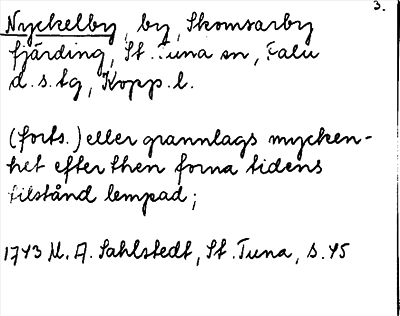 3.
Nyckelby, by, Skomsarby
fjärding, St. Tuna sn, Falu
d.s. tg, Kopp. l.
(forts.) eller grannlags mycken-
het efter then forna tidens
tilstånd lempad;
1743 M. A. Sahlstedt, St. Tuna, s. 45